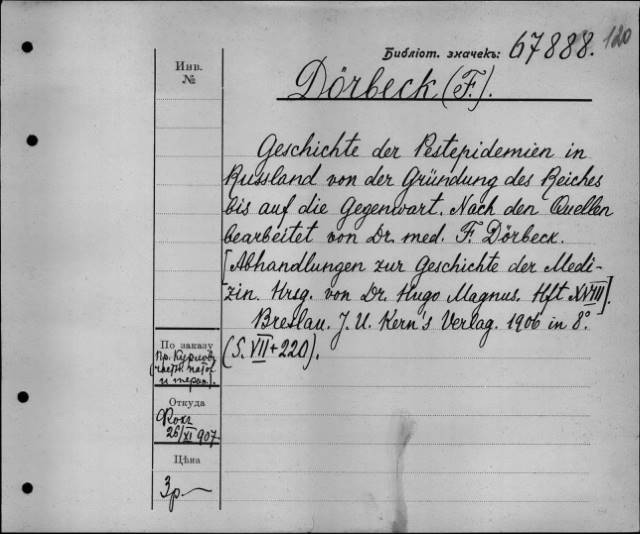 120
Библіот. значекъ: 67888.
Инв.
№
Dörbeck (F.).
Geschichte der Pestepidemien in
Russland von der Gründung des Reiches
bis auf die Gegenwart. Nach den Quellen
bearbeitet von Dr. med. F. Dörbeck.
[Abhandlungen zur Geschichte der Medi-
zin. Hrsg. von Dr. Hugo Magnus. Hft XVIII].
Breslau. J. U. Kern's Verlag. 1906 in 8°.
(S. VII + 220).
По заказу
Пр. Курлов
(частн. патол
и терап.).
Откуда
26/XI 907
Цѣна
3р—